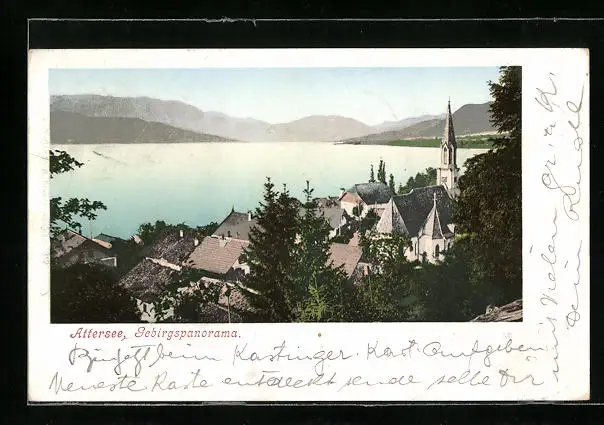 Attersee, Gebirgspanorama.
beim Kastinger. Kart. Aufgeben
Neueste Karte entdeckt sende selbe dir
mit vielen
dein Rudl